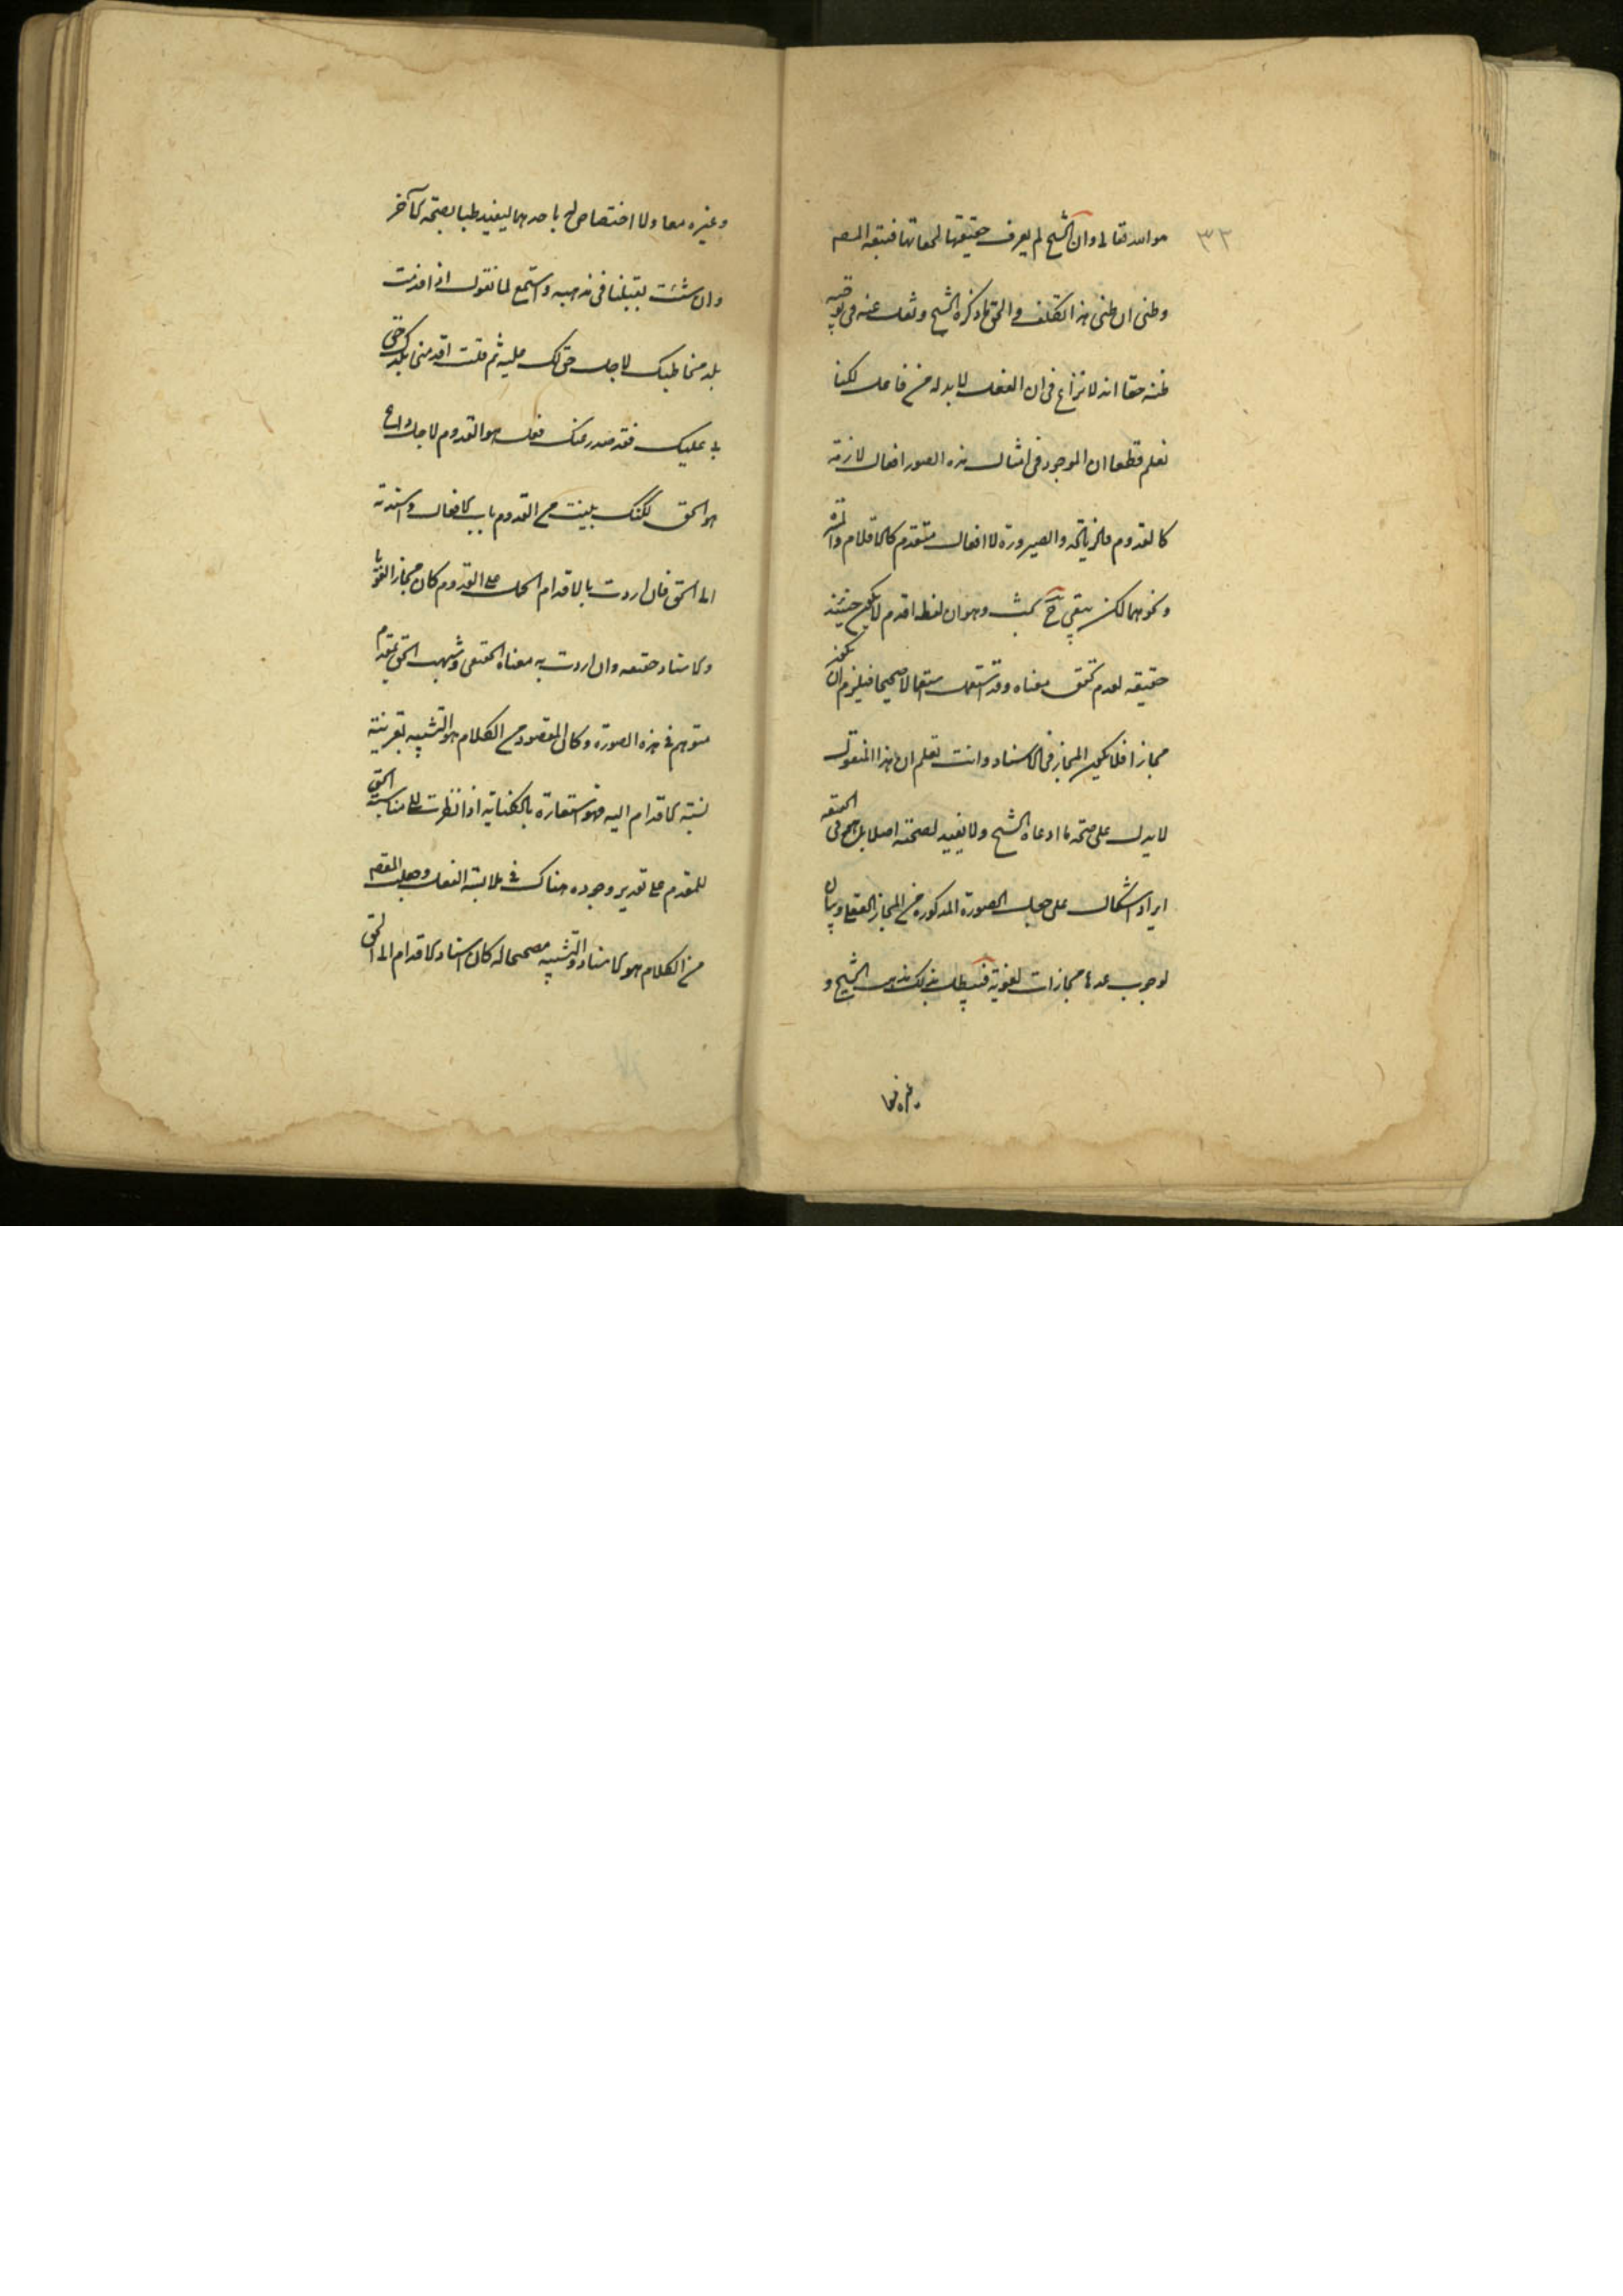 ٣٢
هو الله تعالى وان الشيخ لم يعرف حقيقتها لخفائها فتبعه المصم
وظنى ان ظنى هذا تكلف والحق ما ذكره الشيخ ونقل عنه فى توجيه
ظنه حقا انه لا نزاع فى ان الفعل لابد له من فاعل لكنا
نعلم قطعا ان الموجود فى امثال هذه الصور افعال لازمة
كالقدوم والزيادة والصيرورة لا افعال متقدم كالاقدام
ونحوهما لكن بقى ح بحث وهو ان لفظ اقدم لا يكون حينئذ
حقيقه لعدم تحقق معناه وقد استعمل استعمالا صحيحا فيلزم ان يكون
مجازا فلا يكون المجاز فى الاسناد وانت تعلم ان هذا المنقول
لا يدل على صحة ما ادعاه الشيخ ولا يفيد لصحته اصلا بل هو فى الحقيقه
ايراد اشكال على جعل الصورة المذكورة من المجاز العقلى وبيان
لوجوب عدها مجازات لغوية فيبطل بذلك مذهب الشيخ و
وغيره معا ولا اختصاص له باحدهما ليفيد ظنا بصحة الآخر
وان شئت يقينا فى مذهبه واستمع لما نقول اذا قدمت
بلد مخاطبك لاجل حق لك عليه ثم قلت اقدمنى بلدك حق
لى عليك فقد صدر عنك فعل هو القدوم لاجل داع
هو الحق لكنك بنيت من القدوم باب الافعال واسندته
الى الحق فان اردت بالاقدام الحمل على القدوم كان مجازا لغويا
والاسناد حقيقه وان اردت به معناه الحقيقى وشبهت الحق بمقدم
متوهم فى هذه الصورة وكان المقصود من الكلام هو التشبيه بقرينة
نسبة الاقدام اليه فهو استعارة بالكناية اذا نظرت الى مناسبة الحق
للمقدم على تقدير وجوده هناك فى ملابسة الفعل وجعلت المقصم
من الكلام هو الاسناد والتشبيه مصححا له كان اسناد الاقدام الى الحق